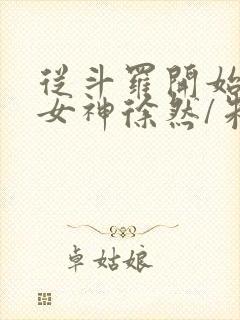 從斗羅開始
女神徐然/朱
卓姑娘